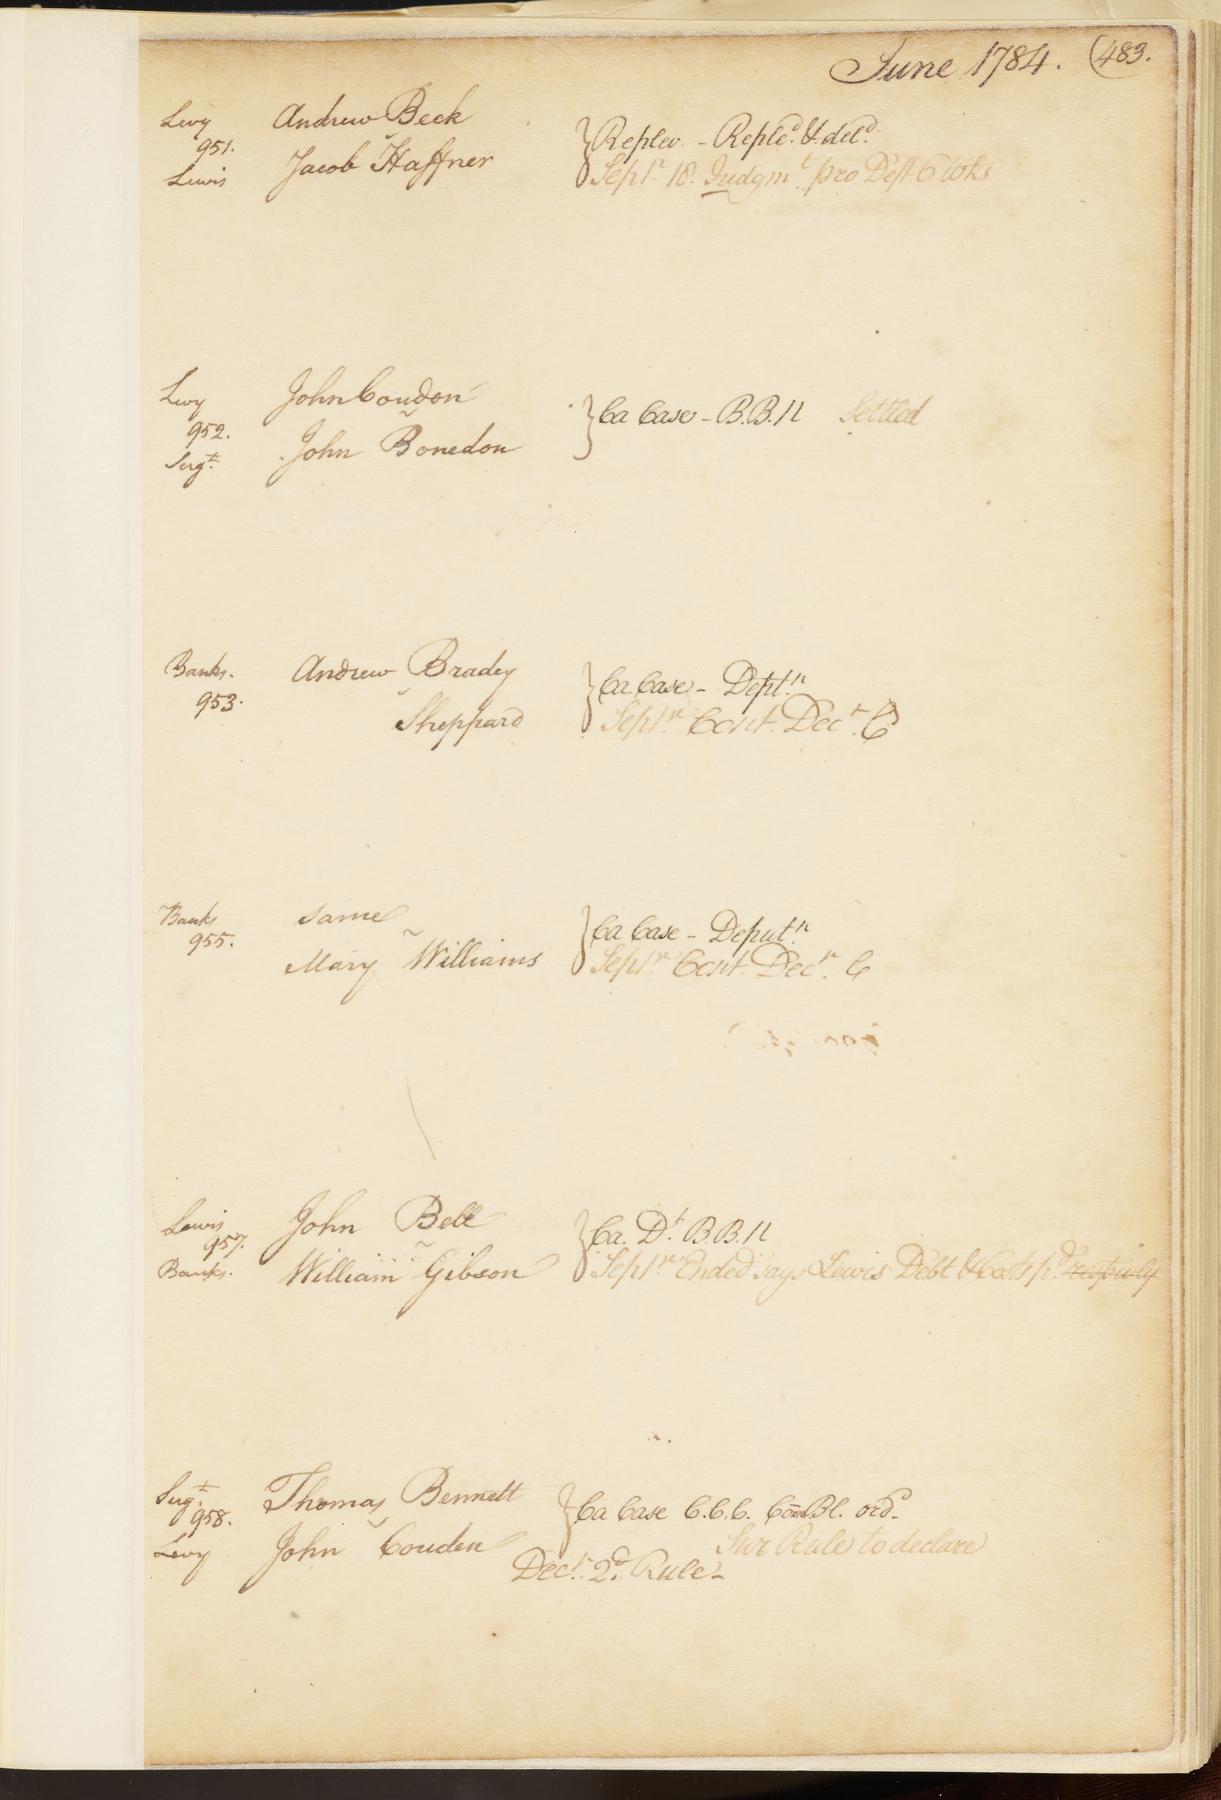 June 1784. (483.
Levy Andrew Beck
951. } Replev. - Reple.d & del.d
Lewis Jacob Haffner Sept.r 18. Judgm.t pro Deft 6 Wks
Levy John Coudon
952. } Ca Case - B.B.H Settled
Serg.t John Bonedon
Banks. Andrew Bradey
953. } Ca. Case - Dept.n
Sheppard Sept.r Cont. Dec.r C
Banks Same
955. } Ca Case - Deput.n
Mary Williams Sept.r Cont. Dec.r C
Lewis John Bell
957. } Ca. D.t B.B.H
Banks. William Gibson Sept.r Ended says Lewis Debt & Costs p.d
Serg.t Thomas Bennett
958. } Ca Case C.C.C. Com Bl. ord.
Levy John Couden Sur Rule to declare
Dec.r 2.d Rule -